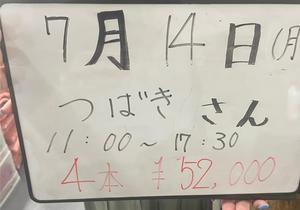 7月14日(月
つばきさん
11:00~17:30
4本 ¥52,000